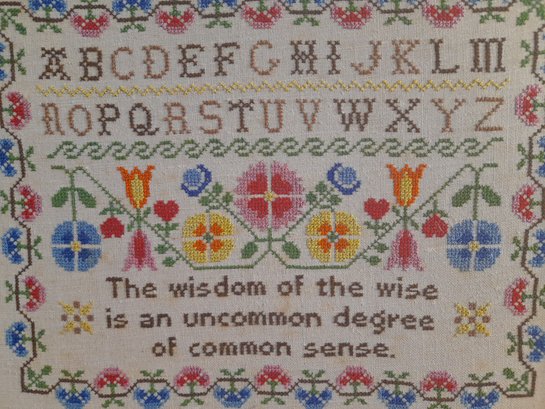 ABCDEFGHIJKLM
NOPQRSTUVWXYZ
The wisdom of the wise
is an uncommon degree
of common sense.